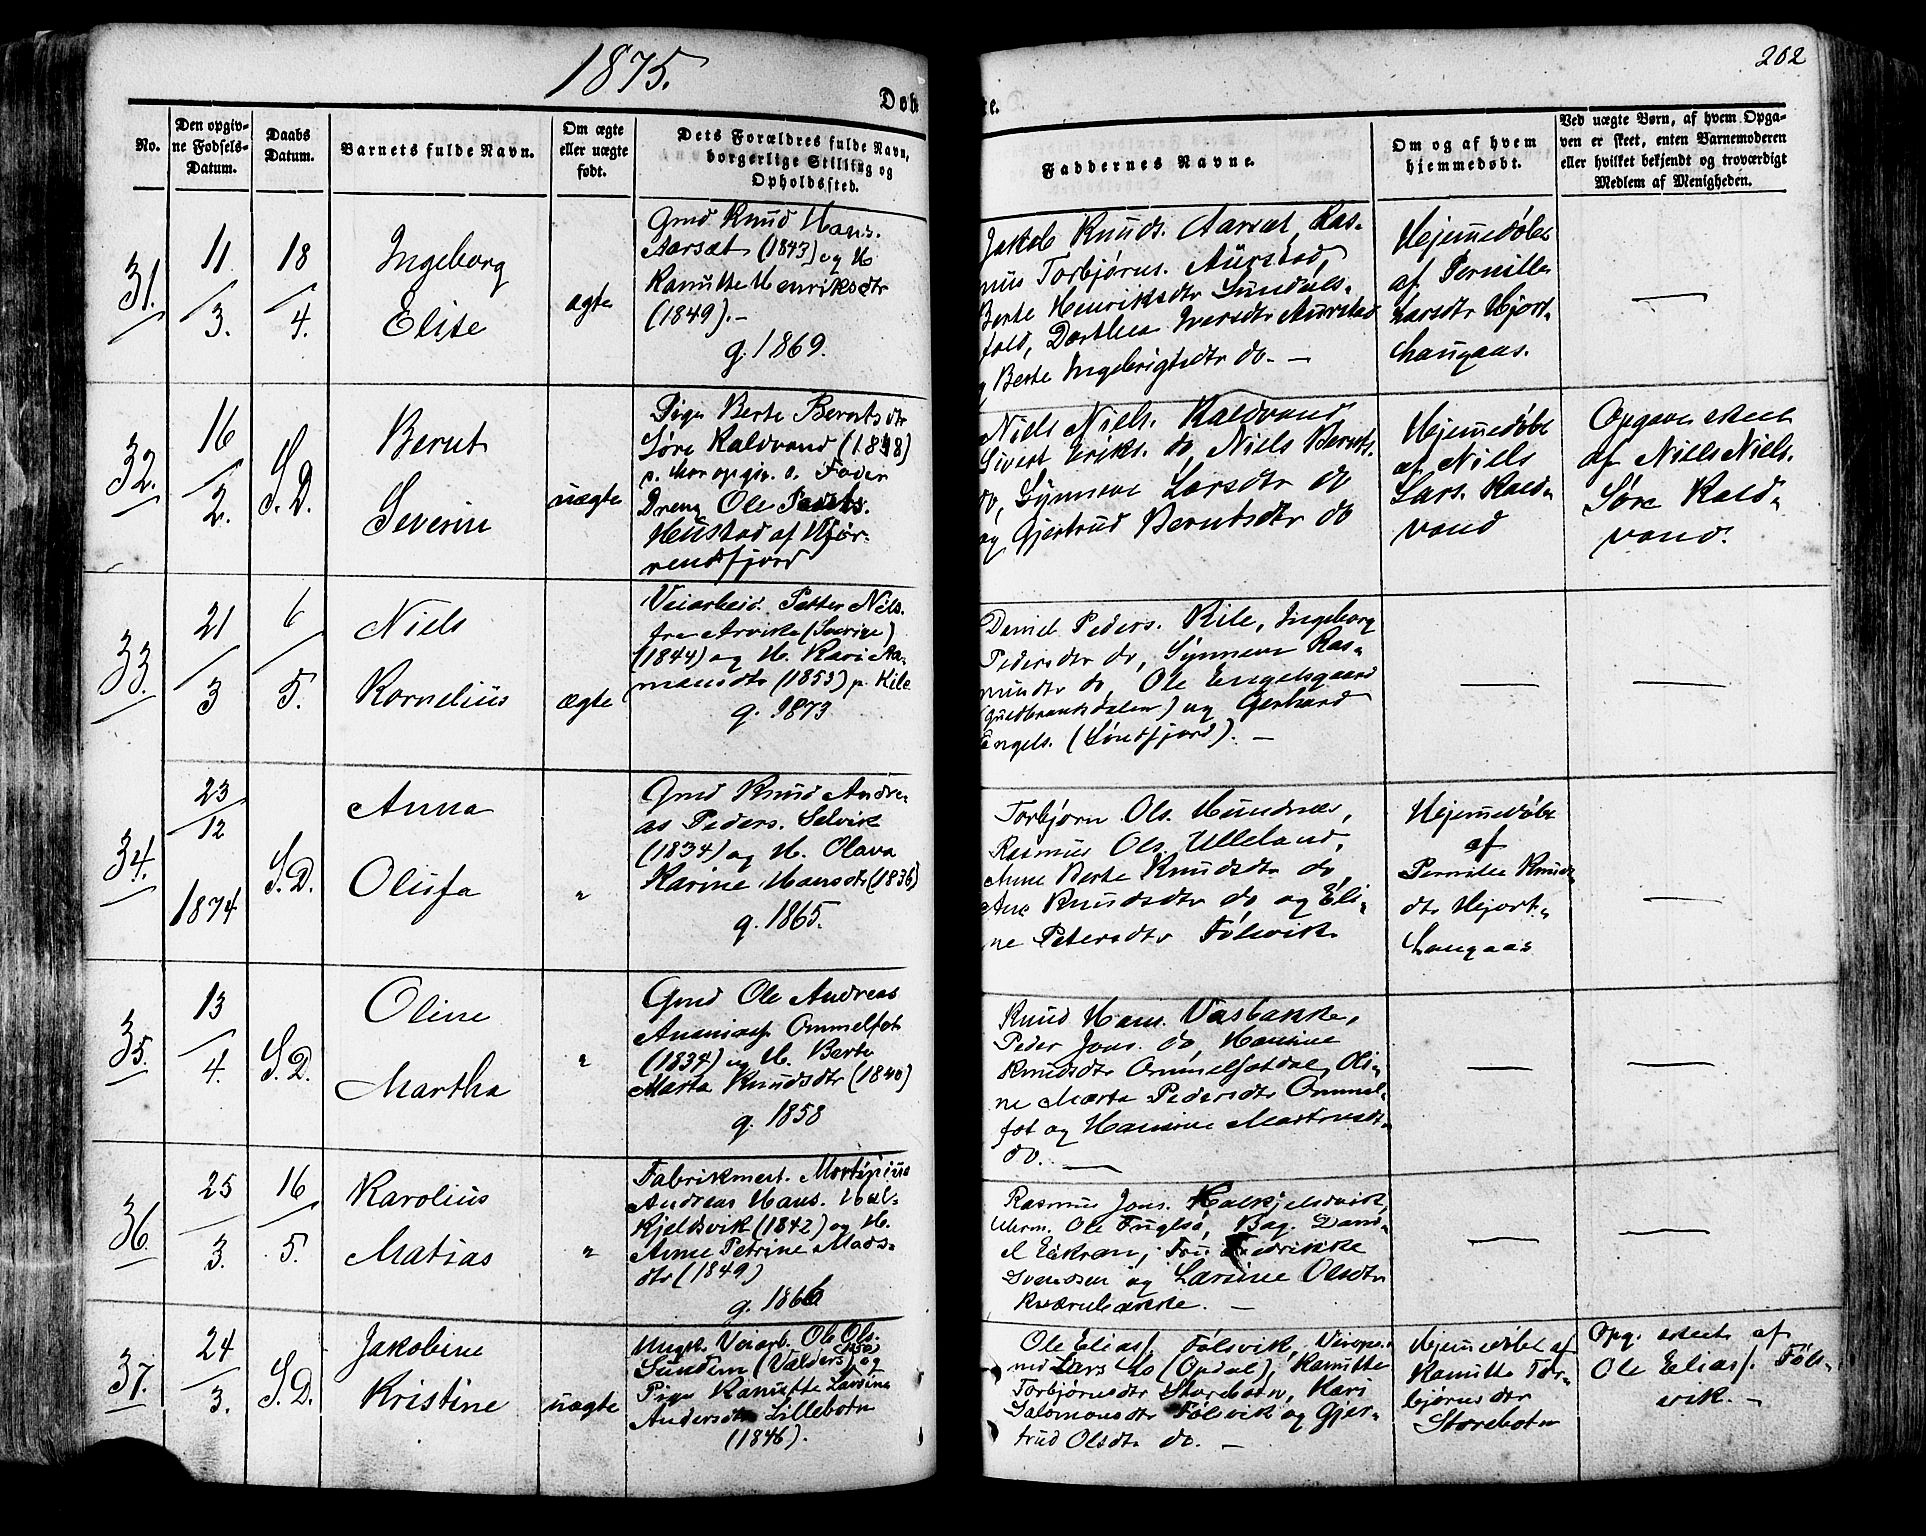 1875.
202
Døb
te.
No.
Den opgiv-
ne Fødsels-
Datum.
Daabs
Datum.
Barnets fulde Navn.
Om ægte
eller uægte
født.
Dets Forældres fulde Navn,
borgerlige Stilling og
Opholdssted.
Faddernes Navne.
Om og af hvem
hjemmedøbt.
Ved uægte Børn, af hvem Opga-
ven er skeet, enten Barnemoderen
eller hvilket bekjendt og troværdigt
Medlem af Menigheden.
31.
11/3.
18/4.
Ingeborg
Elise
ægte
Gmd Knud Hans.
Aarsæt (1843) og H.
Kanutte Henriksdtr
(1849).-
g. 1869.
Jakob Knuds. Aarsæt, Ras-
mus Torbjørns. Aurstad,
Berte Henriksdtr Sundals-
fold, Dorthea Iversdtr Aurstad
og Berte Ingebrigtsdtr do. -
Hjemmedøbt
af Pernille
Larsdtr Hjort-
haugaas.
—
32.
16/2.
S.D.
Berut
Severin
uægte
Pige Berte Berntsdtr
Søre Kaldvand (1848)
Dreng Ole Peders.
Hustad af Hjør-
rendfjord
Niels Niels. Kaldvand
Sivert Eriks. do, Niels Bernts.
do, Synneve Larsdtr do
og Gjertrud Berntsdtr do
Hjemmedøbt
af Niels
Lars. Kald-
vand
Opgaven skeet
af Niels Niels.
Søre Kald-
vand.
33.
21/3
6/5.
Niels
Kornelius
ægte
Veiarbeid. Petter Niels.
fra Arvika (Sverige)
(1844) og H. Kari Aa-
mansdtr (1853) p. Kile
g. 1873
Daniel Peders. Kile, Ingeborg
Pedersdtr do, Synneve Ras-
musdtr do, Ole Engelsgaard
(Guldbrandsdalen) og Gerhard
Engels. (Søndfjord). -
—
—
34.
23/12
1874
S.D.
Anna
Olufa
"
Gmd Knud Andre-
as Peders. Selvik
(1834) og H. Olava
Karine Hansdtr (1836)
g. 1865.
Torbjørn Ols. Hundnæs,
Rasmus Ols. Ulleland,
Anne Berte Knudsdtr do,
Ane Knudsdtr do og Eli-
ne Petersdtr Følsvik
Hjemmedøbt
af
Pernille Knuds-
dtr Hjort-
haugaas
—
35.
13/4.
S.D.
Oline
Martha
"
Gmd Ole Andreas
Ananias. Ommelfot
(1834) og H. Berte
Marta Knudsdtr (1840)
g. 1858
Knud Hans. Vasbakke,
Peder Jons. do, Hansine
Knudsdtr Ommelfotdal, Oli-
ne Marte Pedersdtr Ommel-
fot og Hansine Martinsdtr
do. —
—
—
36.
25/3.
16/5.
Karolius
Matias
"
Fabrikmest. Mortinius
Andreas Hans. Hal-
kjeldsvik (1842) og H.
Anne Petrine Mads-
dtr (1849)
g. 1866
Rasmus Jons. Halkjelsvik,
Uhrm. Ole Fuglsø, Bag. Dani-
el Eikrem, Fru Fredrikke
Svendsen og Larsine Olsdtr
Kværnbakke. -
—
—
37.
24/3.
S.D.
Jakobine
Kristine
uægte
Ungk. Veiarb. Ole Ols.
Sundem (Valders) og
Pige Kanutte Larsine
Andersdtr Lillebotn
(1846).
Ole Elias. Følsvik,
Lars Lo (Opdal), Kanutte
Torbjørnsdtr Storebotn, Kari
Salomonsdtr Følsvik og Gjer-
trud Olsdtr do. -
Hjemmedøbt af
Kanutte Tor-
bjørnsdtr
Storebotn
Opg. skeet af
Ole Elias. Føls-
vik. -